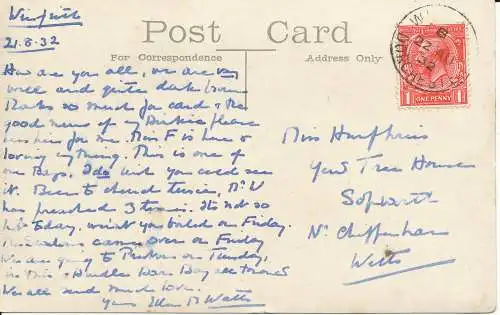 Winfrith
21.8.32
Post Card
For Correspondence
Address Only
How are you all, we are very
well and quite dark brown
Thanks so much for card & the
good news of my Birdie please
kiss him for me. Miss F is here &
loving everything. This is one of
our Bays, I do wish you could see
it. Been to church twice, Mr V
has preached 3 times. Its not so
hot today, weren't you boiled on Friday.
came over on Friday
We are going to on Tuesday,
is this Bay
We all send much love.
Yours Ellen M Watts
Miss Humphries
Yew Tree House
Sopworth
Nr Chippenham
Wilts
DORCHESTER
22 AU
32
ONE PENNY